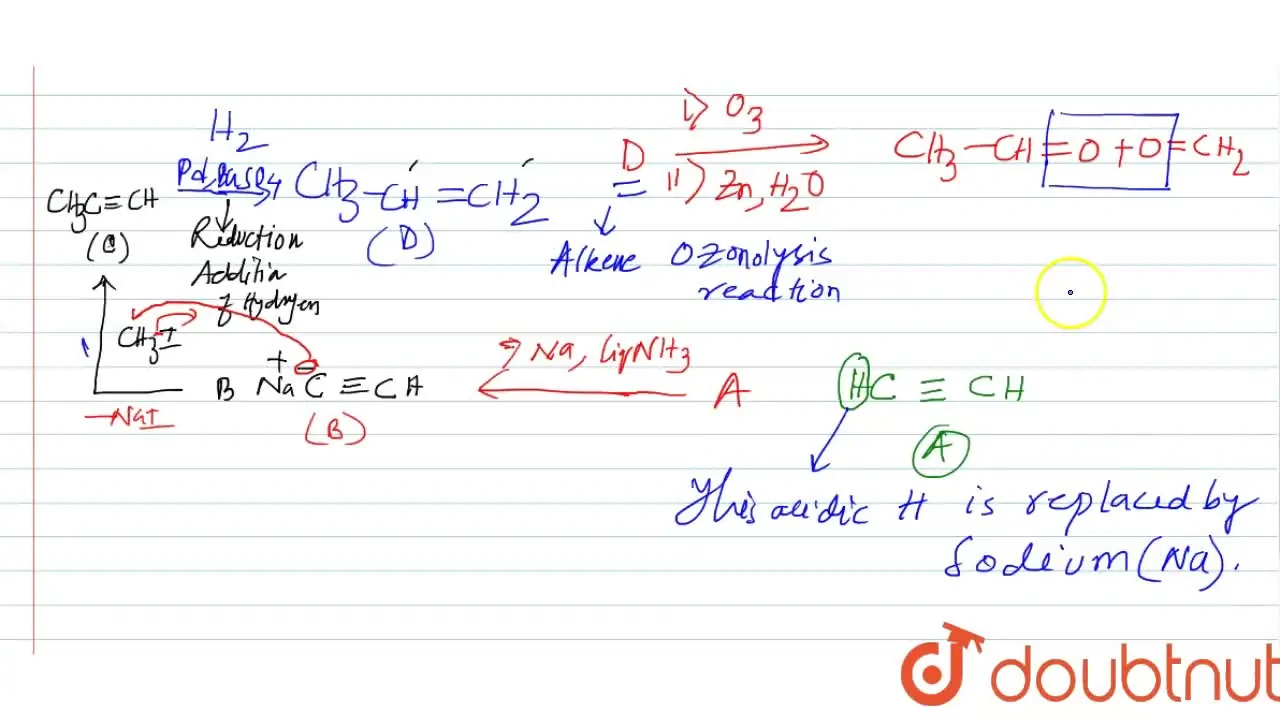 H₂
Pd, BaSO₄
CH₃C≡CH
(C)
Reduction
Addition
of Hydrogen
CH₃-CH=CH₂
(D)
D
Alkene
i) O₃
ii) Zn, H₂O
Ozonolysis
reaction
CH₃-CH=O+O=CH₂
CH₃I
-NaI
B Na⁺ C⊖≡CH
(B)
Na, liqNH₃
A
HC≡CH
A
This acidic H is replaced by
Sodium (Na).
doubtnut